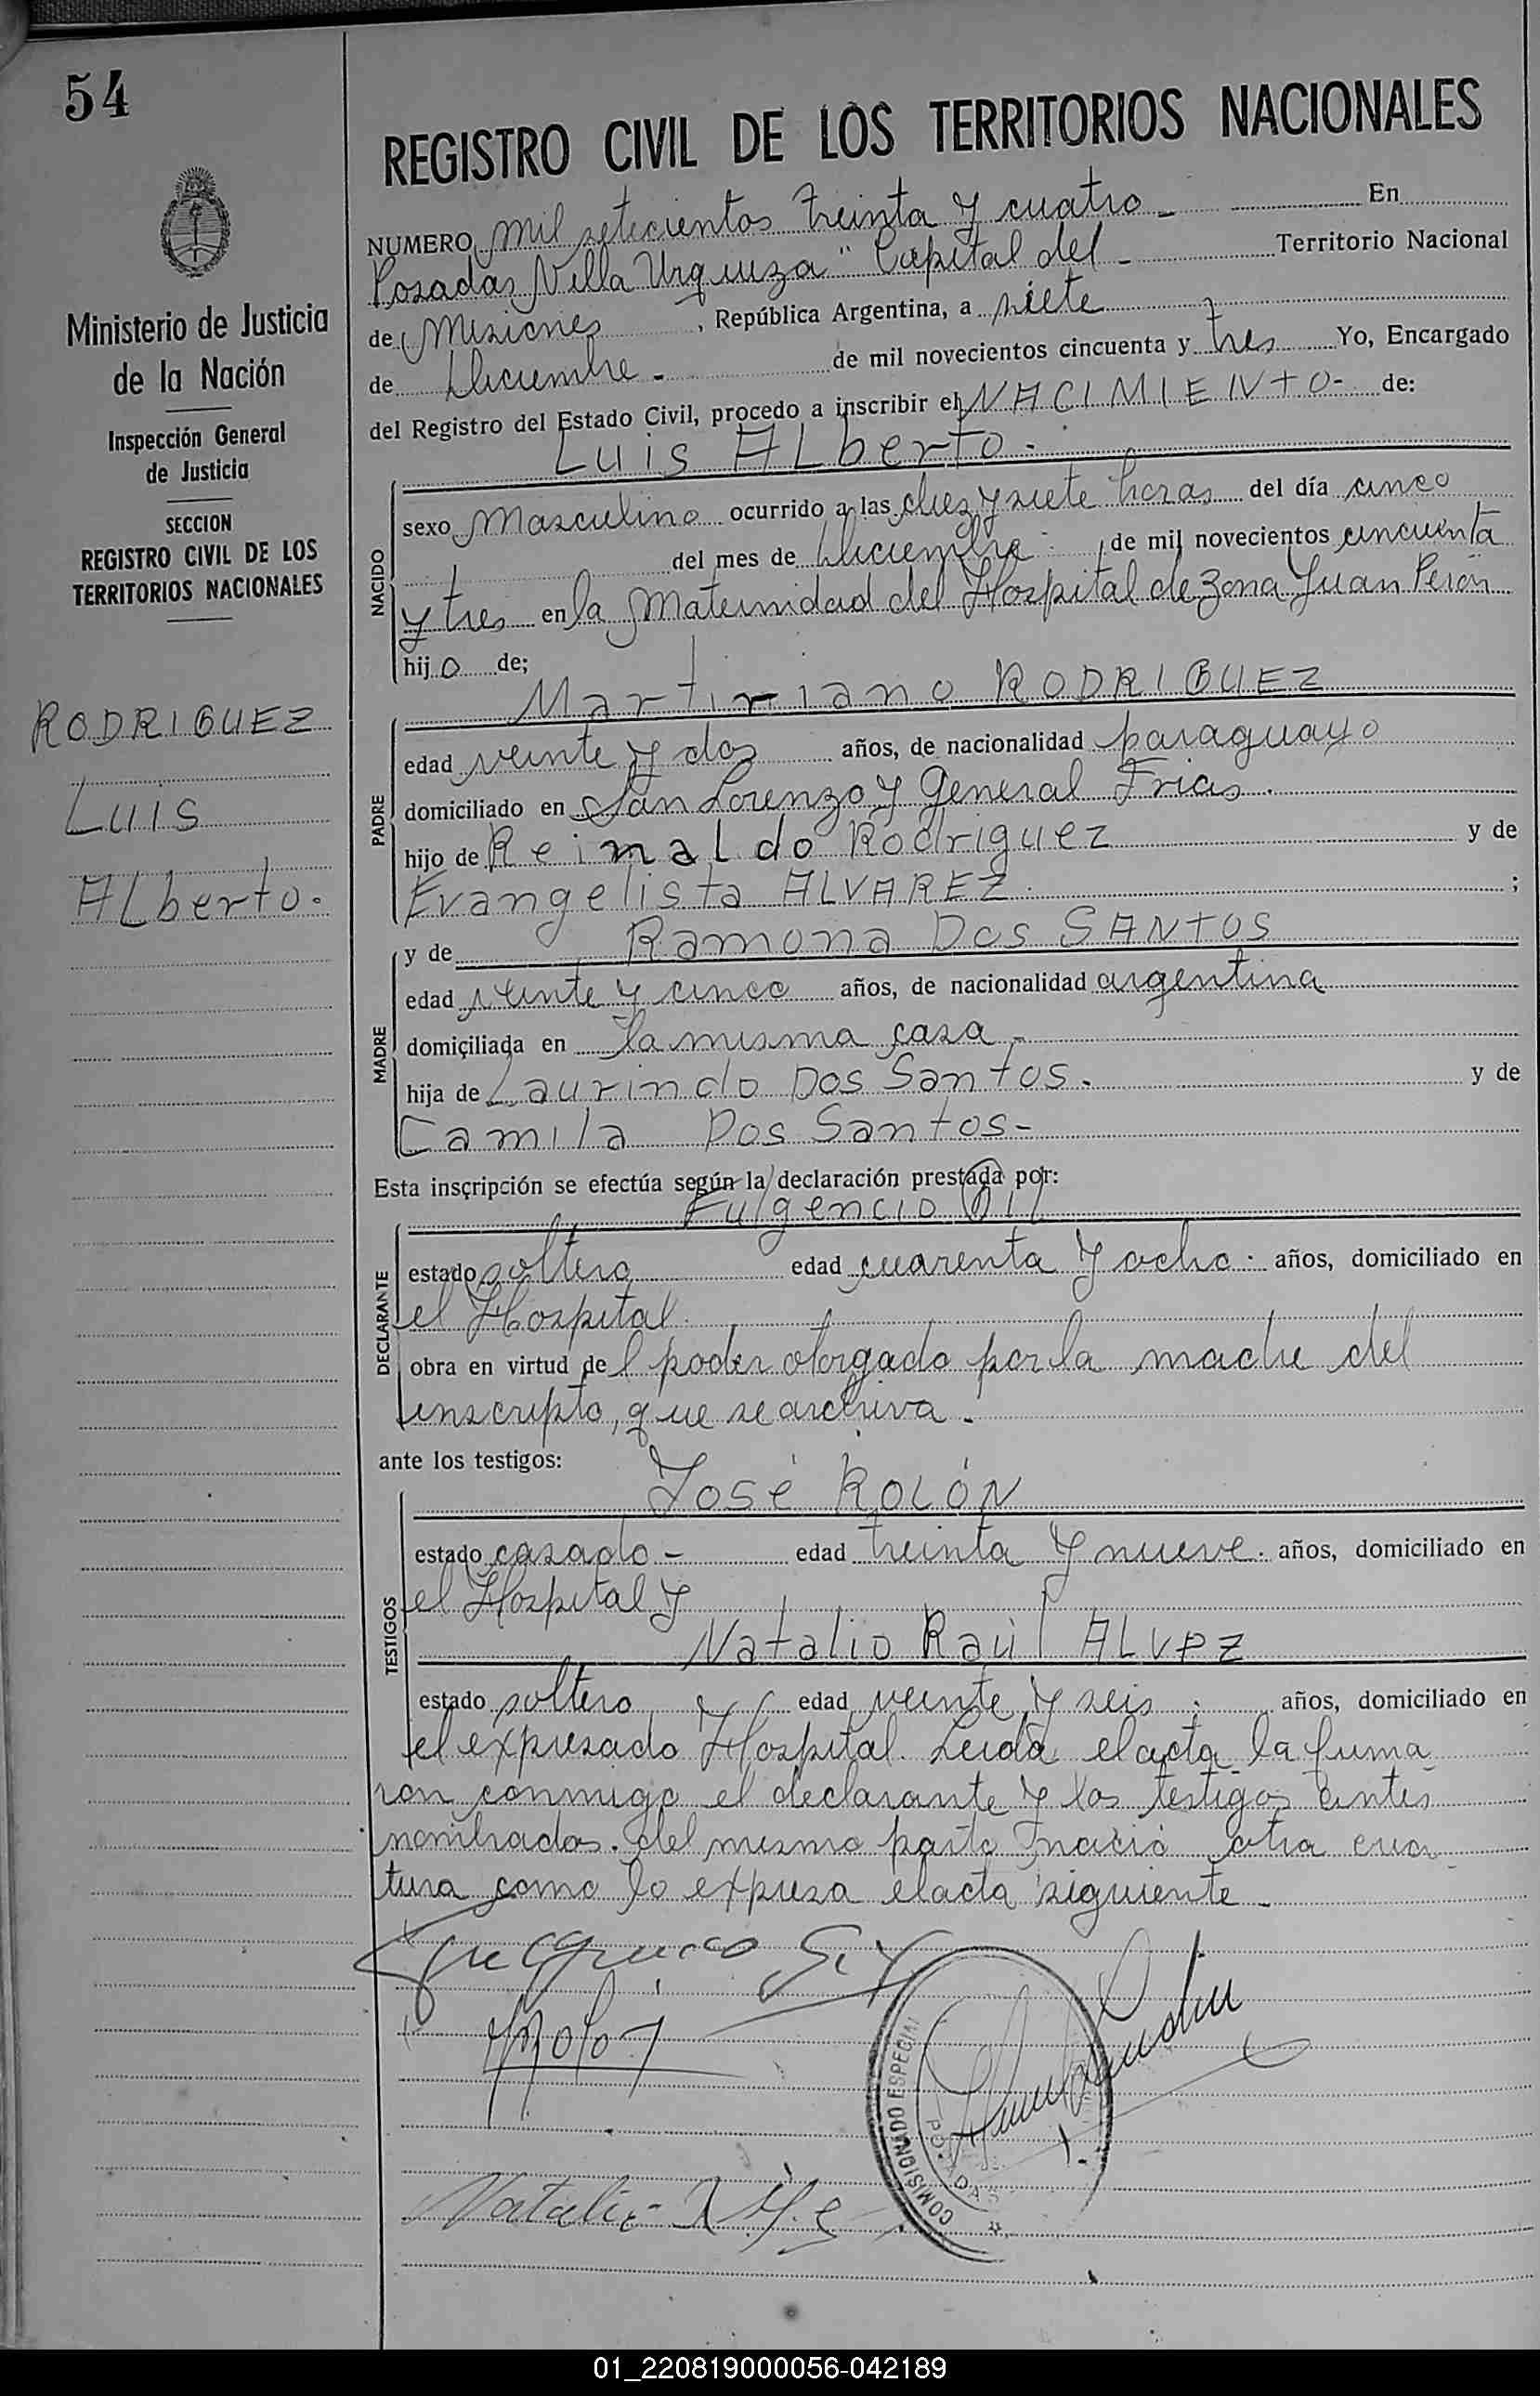 54
REGISTRO CIVIL DE LOS TERRITORIOS NACIONALES
NUMERO mil setecientos treinta y cuatro - En
Posadas, Villa Urquiza" Capital del - Territorio Nacional
de Misiones, República Argentina, a siete
de Diciembre - de mil novecientos cincuenta y tres Yo, Encargado
del Registro del Estado Civil, procedo a inscribir el NACIMIENTO- de:
Luis ALberto -
Ministerio de Justicia
de la Nación
Inspección General
de Justicia
SECCION
REGISTRO CIVIL DE LOS
TERRITORIOS NACIONALES
RODRIGUEZ
Luis
ALberto.
NACIDO
sexo Masculino ocurrido a las diez y siete horas del día cinco
del mes de Diciembre - de mil novecientos cincuenta
y tres en la Maternidad del Hospital de Zona Juan Perón
hijo de;
Martiriano RODRIGUEZ
PADRE
edad veinte y dos años, de nacionalidad paraguayo
domiciliado en San Lorenzo y General Frias.
hijo de Reimaldo Rodriguez y de
Evangelista ALVAREZ. ;
y de Ramona Dos SANTOS
MADRE
edad veinte y cinco años, de nacionalidad argentina
domiciliada en la misma casa -
hija de Laurindo Dos Santos. y de
Camila Dos Santos-
Esta inscripción se efectúa según la declaración prestada por:
Fulgencio Gil
DECLARANTE
estado soltero edad cuarenta y ocho. años, domiciliado en
el Hospital.
obra en virtud del poder otorgado por la madre del
inscripto, que se archiva.
ante los testigos:
José ROLÓN
TESTIGOS
estado casado - edad treinta y nueve. años, domiciliado en
el Hospital y
Natalio Raúl ALVEZ
estado soltero y edad veinte y seis. años, domiciliado en
el expresado Hospital. Leida el acta la firma
ron conmigo el declarante y los testigos antes
nombrados. Del mismo parto nació otra cria
tura como lo expresa el acta siguiente -
COMISIONADO ESPECIAL
POSADAS
01_220819000056-042189